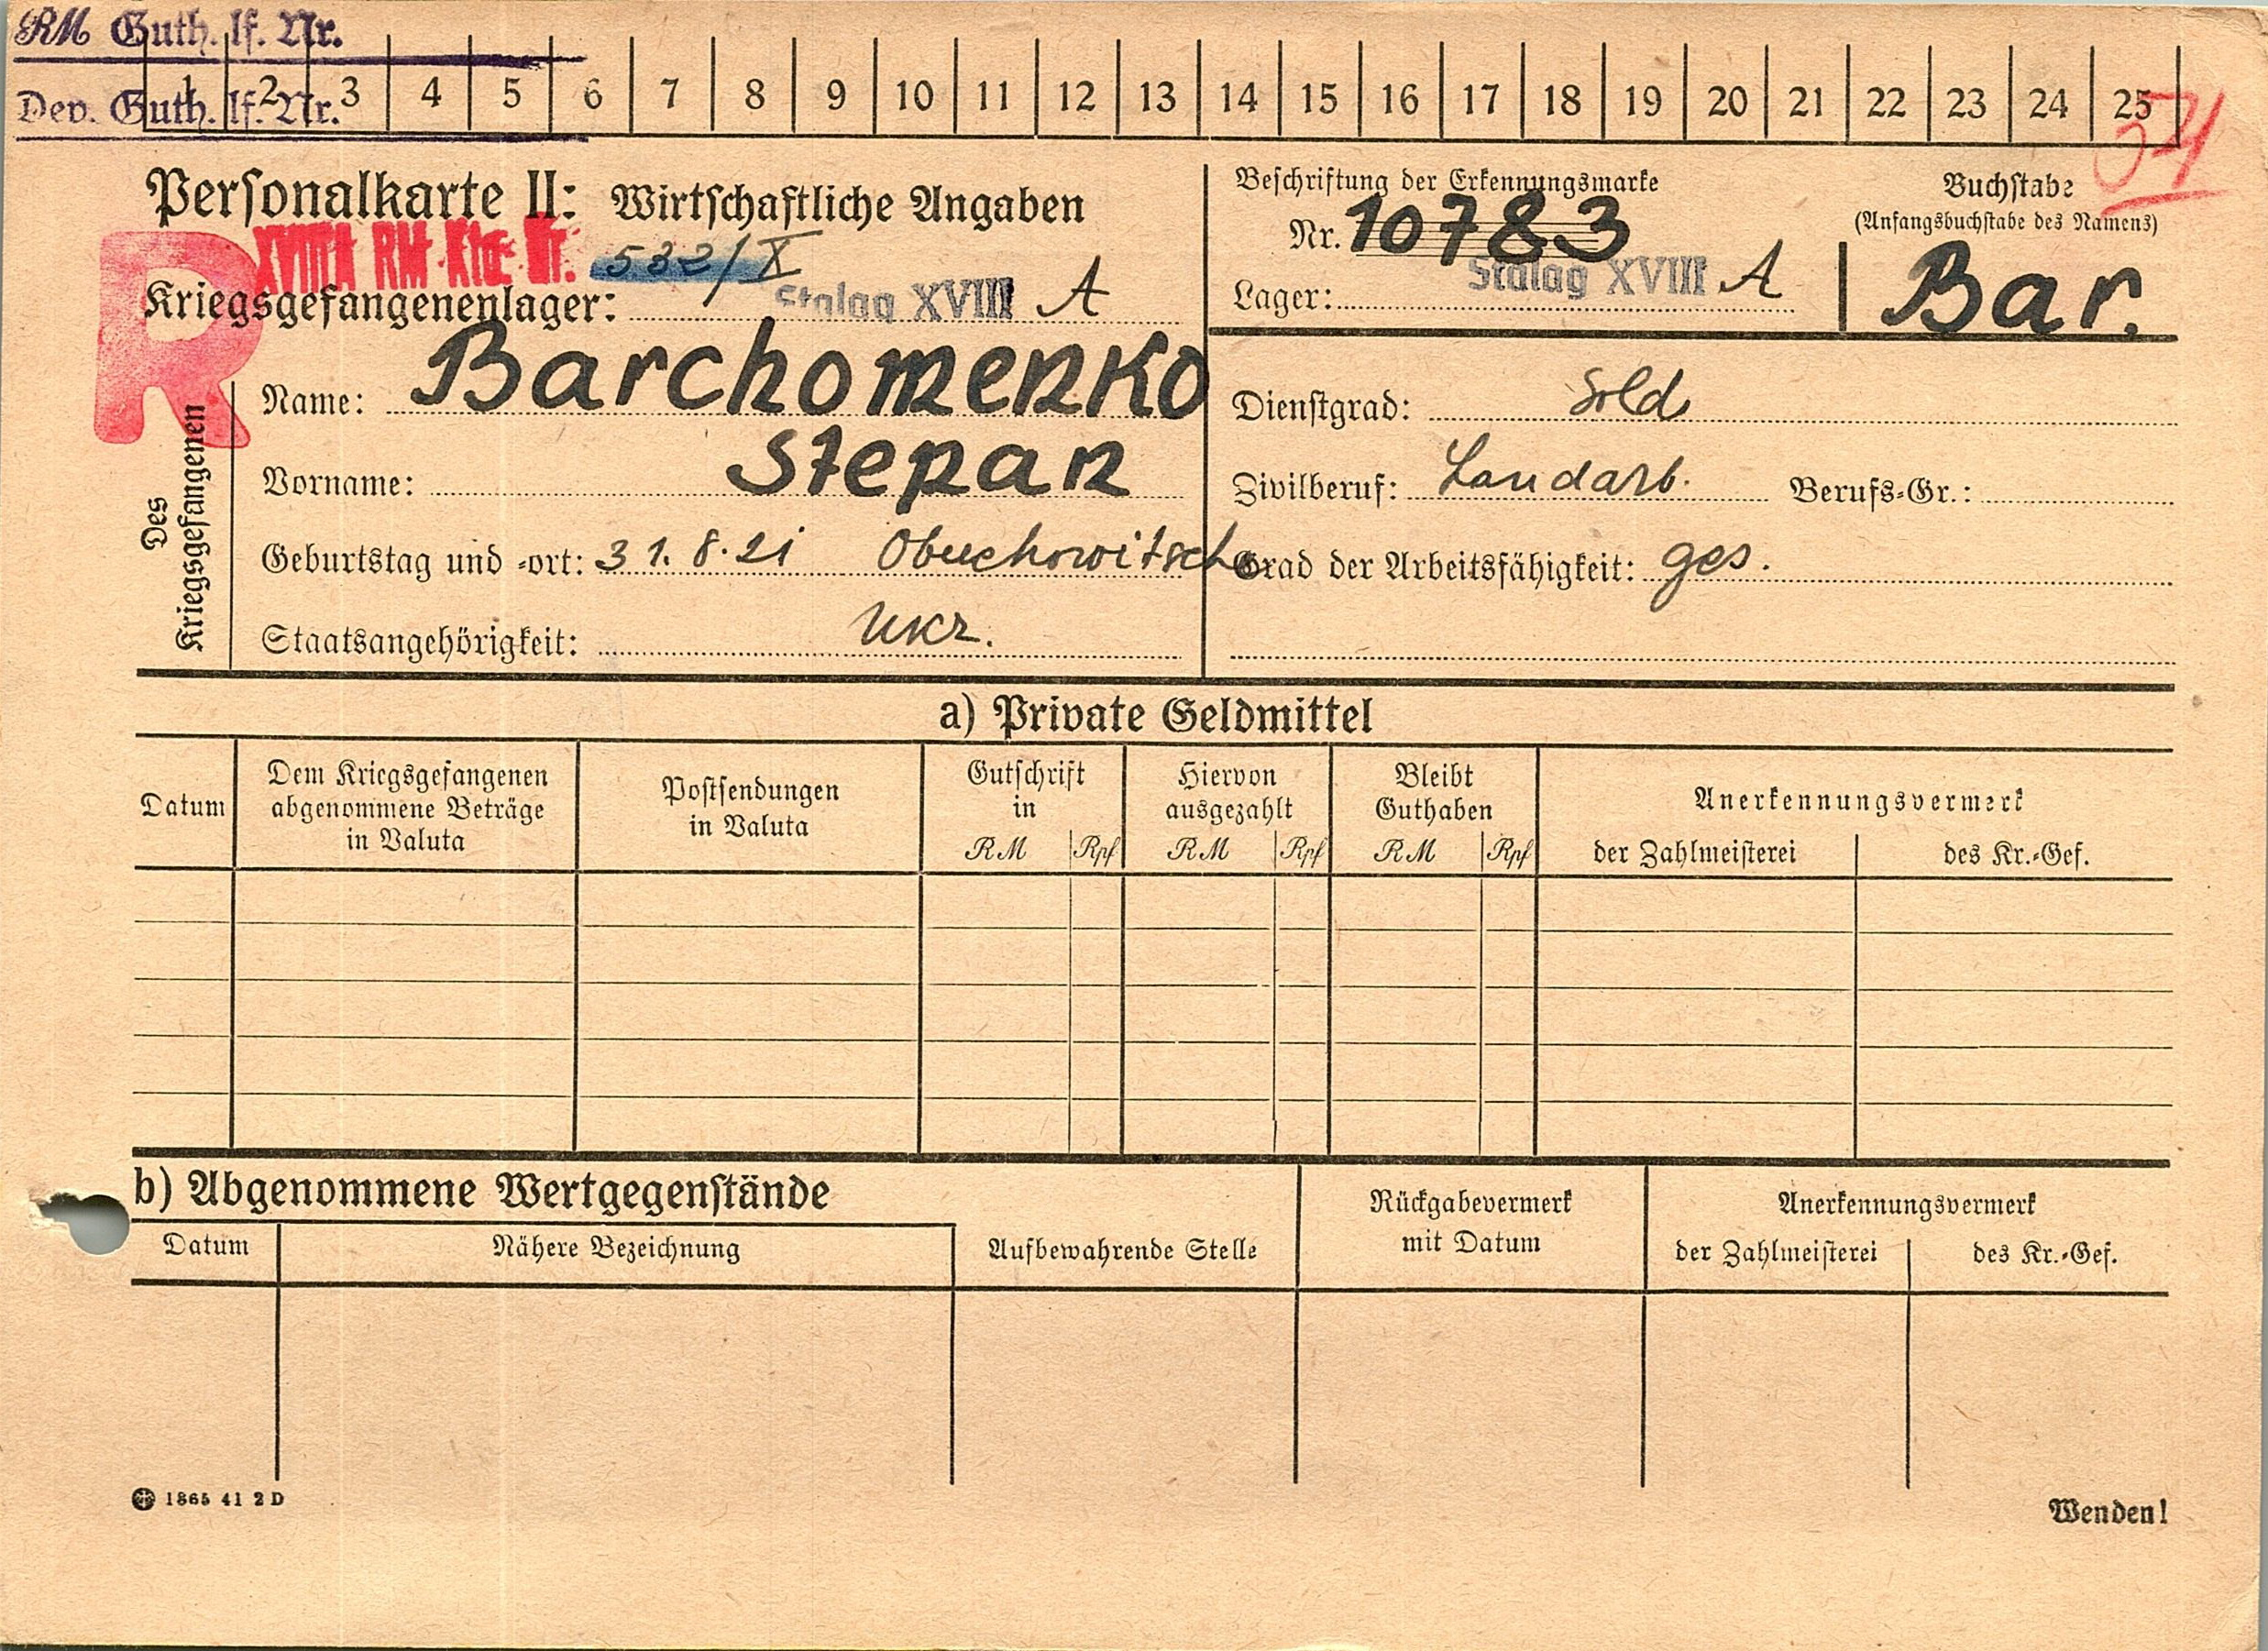 RM Guth. lf. Nr.
Dev. Guth. lf. Nr.
1 2 3 4 5 6 7 8 9 10 11 12 13 14 15 16 17 18 19 20 21 22 23 24 25
Personalkarte II: Wirtschaftliche Angaben
R
XVIIIA RM Kto Nr. 532/X
Kriegsgefangenenlager: Stalag XVIII A
Beschriftung der Erkennungsmarke
Nr. 10783
Lager: Stalag XVIII A
Buchstabe
(Anfangsbuchstabe des Namens)
Bar.
Des Kriegsgefangenen
Name: Barchomenko
Vorname: Stepan
Geburtstag und -ort: 31.8.21 Obuchowitsche
Staatsangehörigkeit: Ukr.
Dienstgrad: Sold.
Zivilberuf: Landarb. Berufs-Gr.:
Grad der Arbeitsfähigkeit: ges.
a) Private Geldmittel
Datum
Dem Kriegsgefangenen
abgenommene Beträge
in Valuta
Postsendungen
in Valuta
Gutschrift
in
RM Rpf
Hiervon
ausgezahlt
RM Rpf
Bleibt
Guthaben
RM Rpf
Anerkennungsvermerk
der Zahlmeisterei des Kr.-Gef.
b) Abgenommene Wertgegenstände
Datum Nähere Bezeichnung
Aufbewahrende Stelle
Rückgabevermerk
mit Datum
Anerkennungsvermerk
der Zahlmeisterei des Kr.-Gef.
1865 41 2 D
Wenden!